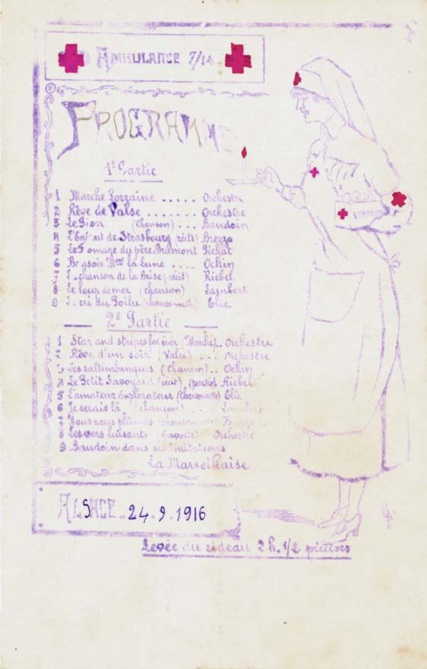 AMBULANCE 7/14
PROGRAMME
1e Partie
1 Marche Lorraine ..... Orchestre
2 Rêve de Valse ..... Orchestre
3 Le Pion (chanson) ... Baudoin
4 L'Enfant de Strasbourg (récit) Brezzo
5 Le Fromage du père Brulemont Pichat
6 Bonsoir Mme la Lune .... Ochin
7 chanson de la Brise (récit) Riebel
8 Le loup de mer (chanson) Lambert
9 Le cri du Poilu Elie
2e Partie
1 Star and stripes for ever Orchestre
2 Rêve d'un soir (Valse) ... Orchestre
3 Les saltimbanques (chanson) .. Ochin
4 Le Petit Savoyard (récit) Riebel
5 L'amateur Explorateur Elie
6 Je serais là (chanson)
7
8 Les vers luisants Orchestre
9 Baudoin dans ses imitations
La Marseillaise
ALSACE. 24.9.1916
Levée du rideau 2 h. 1/2 précises